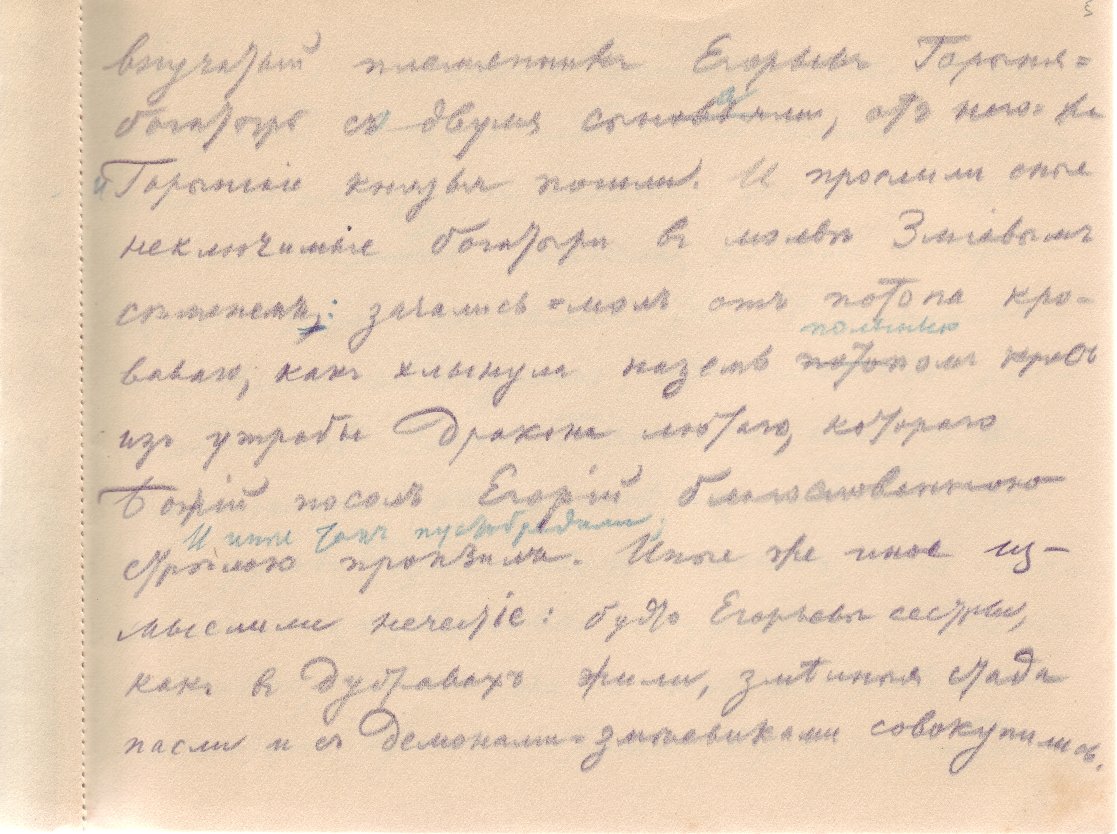 5
внучатый племянникъ Егорьевъ Горыня=
богатырь съ двумя сыновьями, отъ него= и
Горынскіе князья пошли. И прослыли оные
неключимые богатыри въ молвѣ Зміевымъ
сѣменемъ: зачались=молъ отъ потопа кро-
ваваго, какъ хлынула наземь потопомъ кровь
полымью
изъ утробы Дракона лютаго, котораго
Божій посолъ Егорій благословенною
И иные такъ пустобредили;
стрѣлою пронзилъ. Иные же иное из-
мыслили нечестіе: будто Егорьевы сестры,
какъ въ дубравахъ жили, змѣиныя стада
пасли и съ демонами=змѣевиками совокупились.